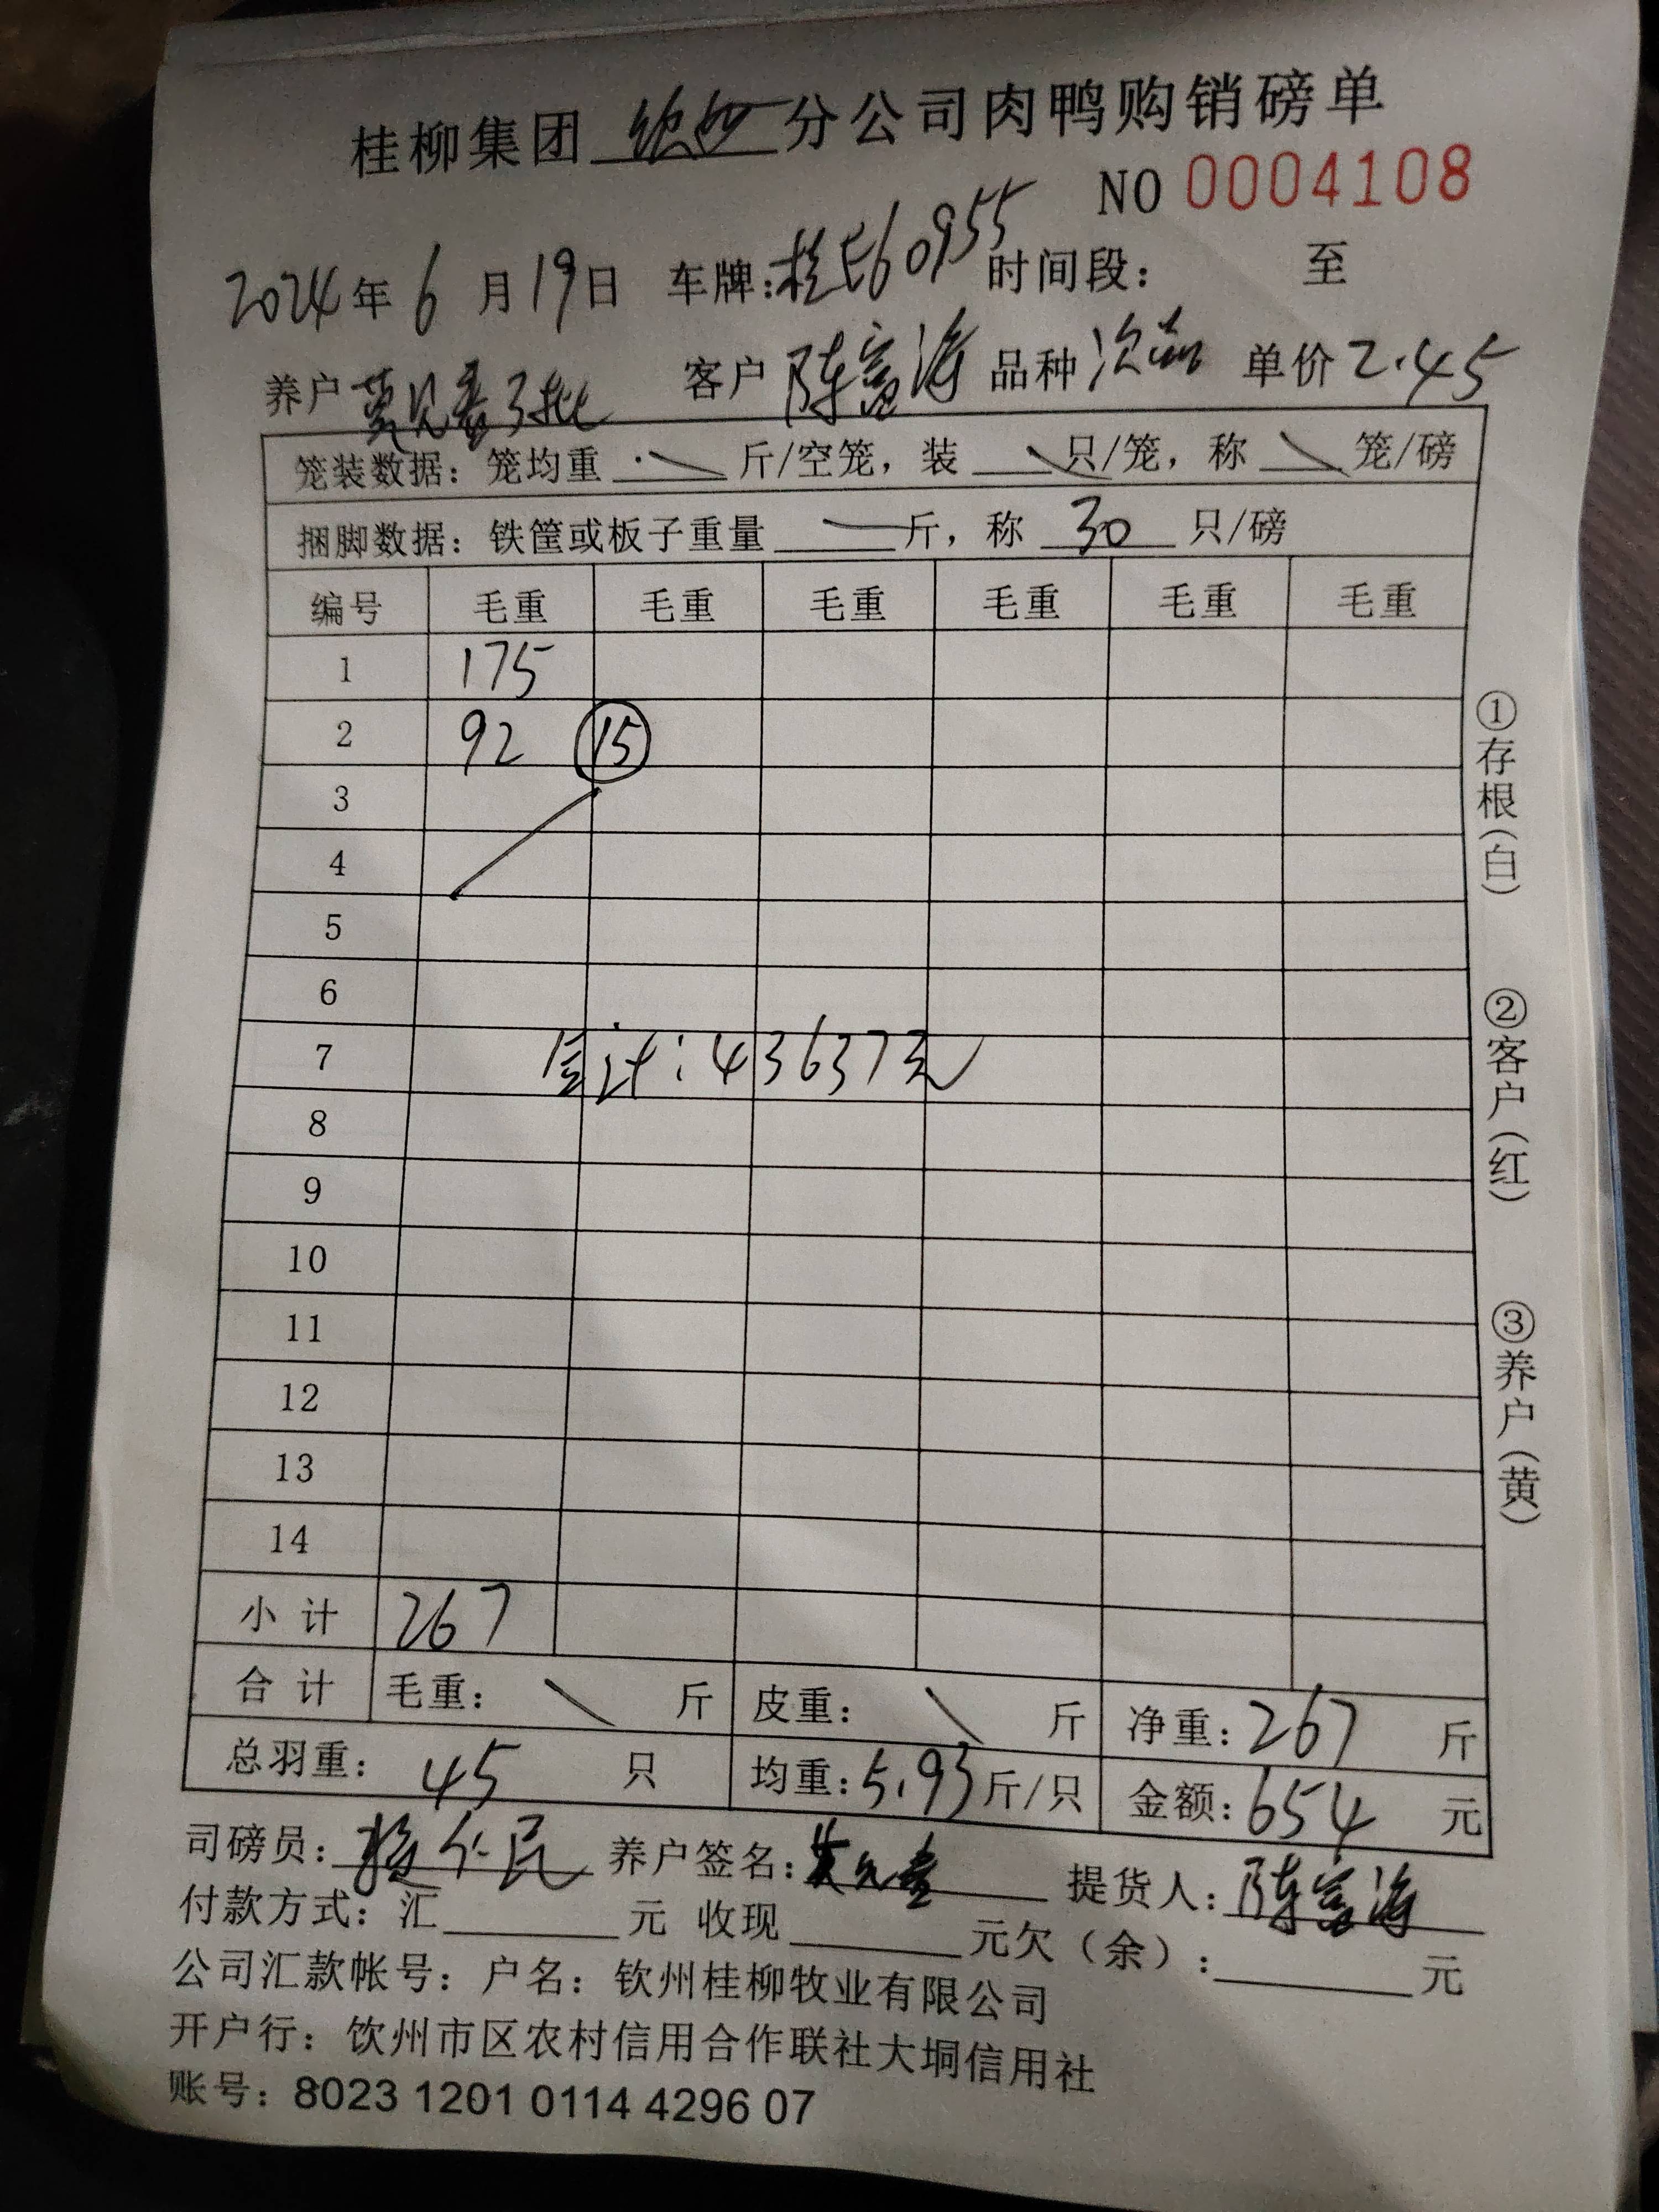 桂柳集团 钦州 分公司肉鸭购销磅单
NO 0004108
2024年 6 月 19日 车牌: 桂E60955 时间段： 至
养户 客户 陈富海 品种 次品 单价 2.45
笼装数据：笼均重 斤/空笼，装 只/笼，称 笼/磅
捆脚数据：铁筐或板子重量 斤，称 30 只/磅
编号 毛重 毛重 毛重 毛重 毛重 毛重
1 175
2 92 15
3
4
5
6
7 合计：43637元
8
9
10
11
12
13
14
小计 267
合计 毛重： 斤 皮重： 斤 净重：267 斤
总羽重：45 只 均重：5.93 斤/只 金额：654 元
司磅员： 养户签名： 提货人：陈富海
付款方式：汇 元 收现 元欠（余）： 元
公司汇款帐号：户名：钦州桂柳牧业有限公司
开户行：饮州市区农村信用合作联社大垌信用社
账号：8023 1201 0114 4296 07
①存根(白)
②客户(红)
③养户(黄)